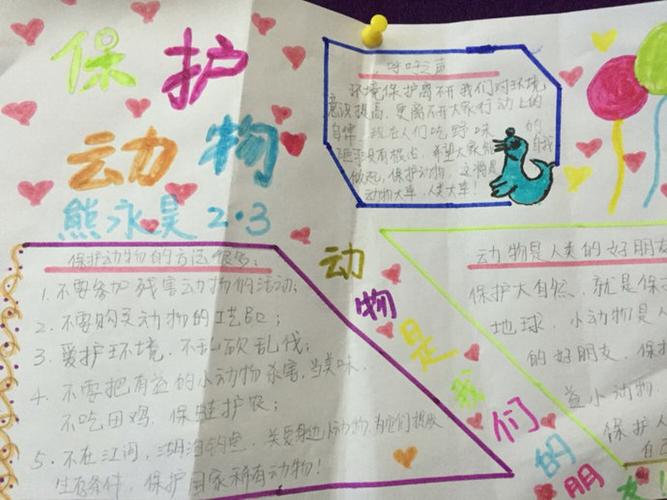 保护
动物
熊永昊 2·3
呼吁之声
环境保护离不开我们对环境
意识提高，更离不开大家行动上的
自律，现在人们吃野味的
做起，保护动物，
动物大军，人类大军！
保护动物的方法很多：
1. 不要参加残害动物的活动；
2. 不要购买动物的工艺品；
3. 爱护环境，不乱砍乱伐；
4. 不要把有益的小动物杀害，当美味，
不吃田鸡，保蛙护农；
5. 不在江河，湖泊钓鱼，关爱身边小动物，为它们提供
生存条件，保护国家稀有动物！
动物是我们的朋友
动物是人类的好朋友
保护大自然，就是保
地球，小动物是人
的好朋友，保护
益小动物
保护人
自己